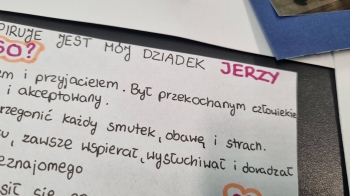 PIRUJE JEST MÓJ DZIADEK JERZY
GO?
em i przyjacielem. Był przekochanym człowiekie
i akceptowany.
rzegonić każdy smutek, obawę i strach.
u, zawsze wspierał, wysłuchiwał i doradzał
eznajomego